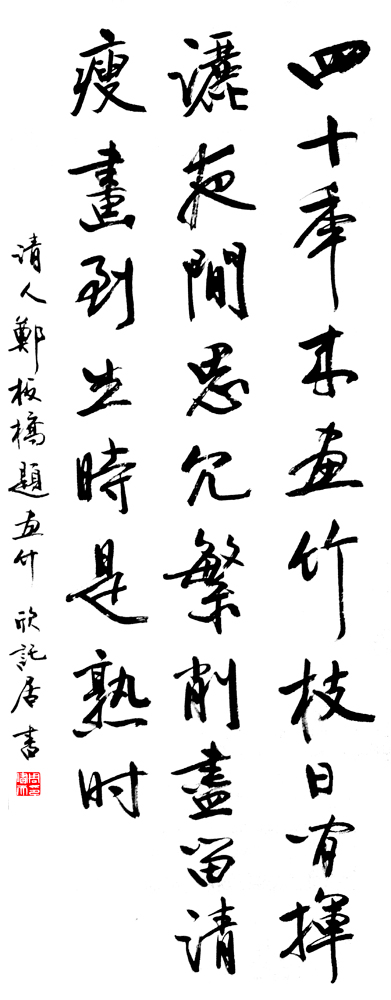 四十秊来画竹枝日间揮
灑夜間思冗繁削盡留清
瘦畫到生時是熟时
清人鄭板橋題画竹 欣託居書